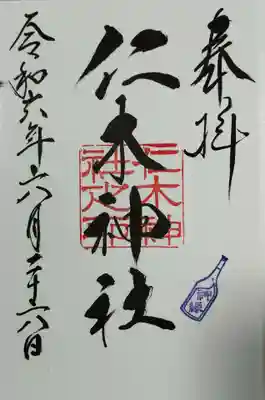 奉拝
仁木神社
令和六年六月二十八日